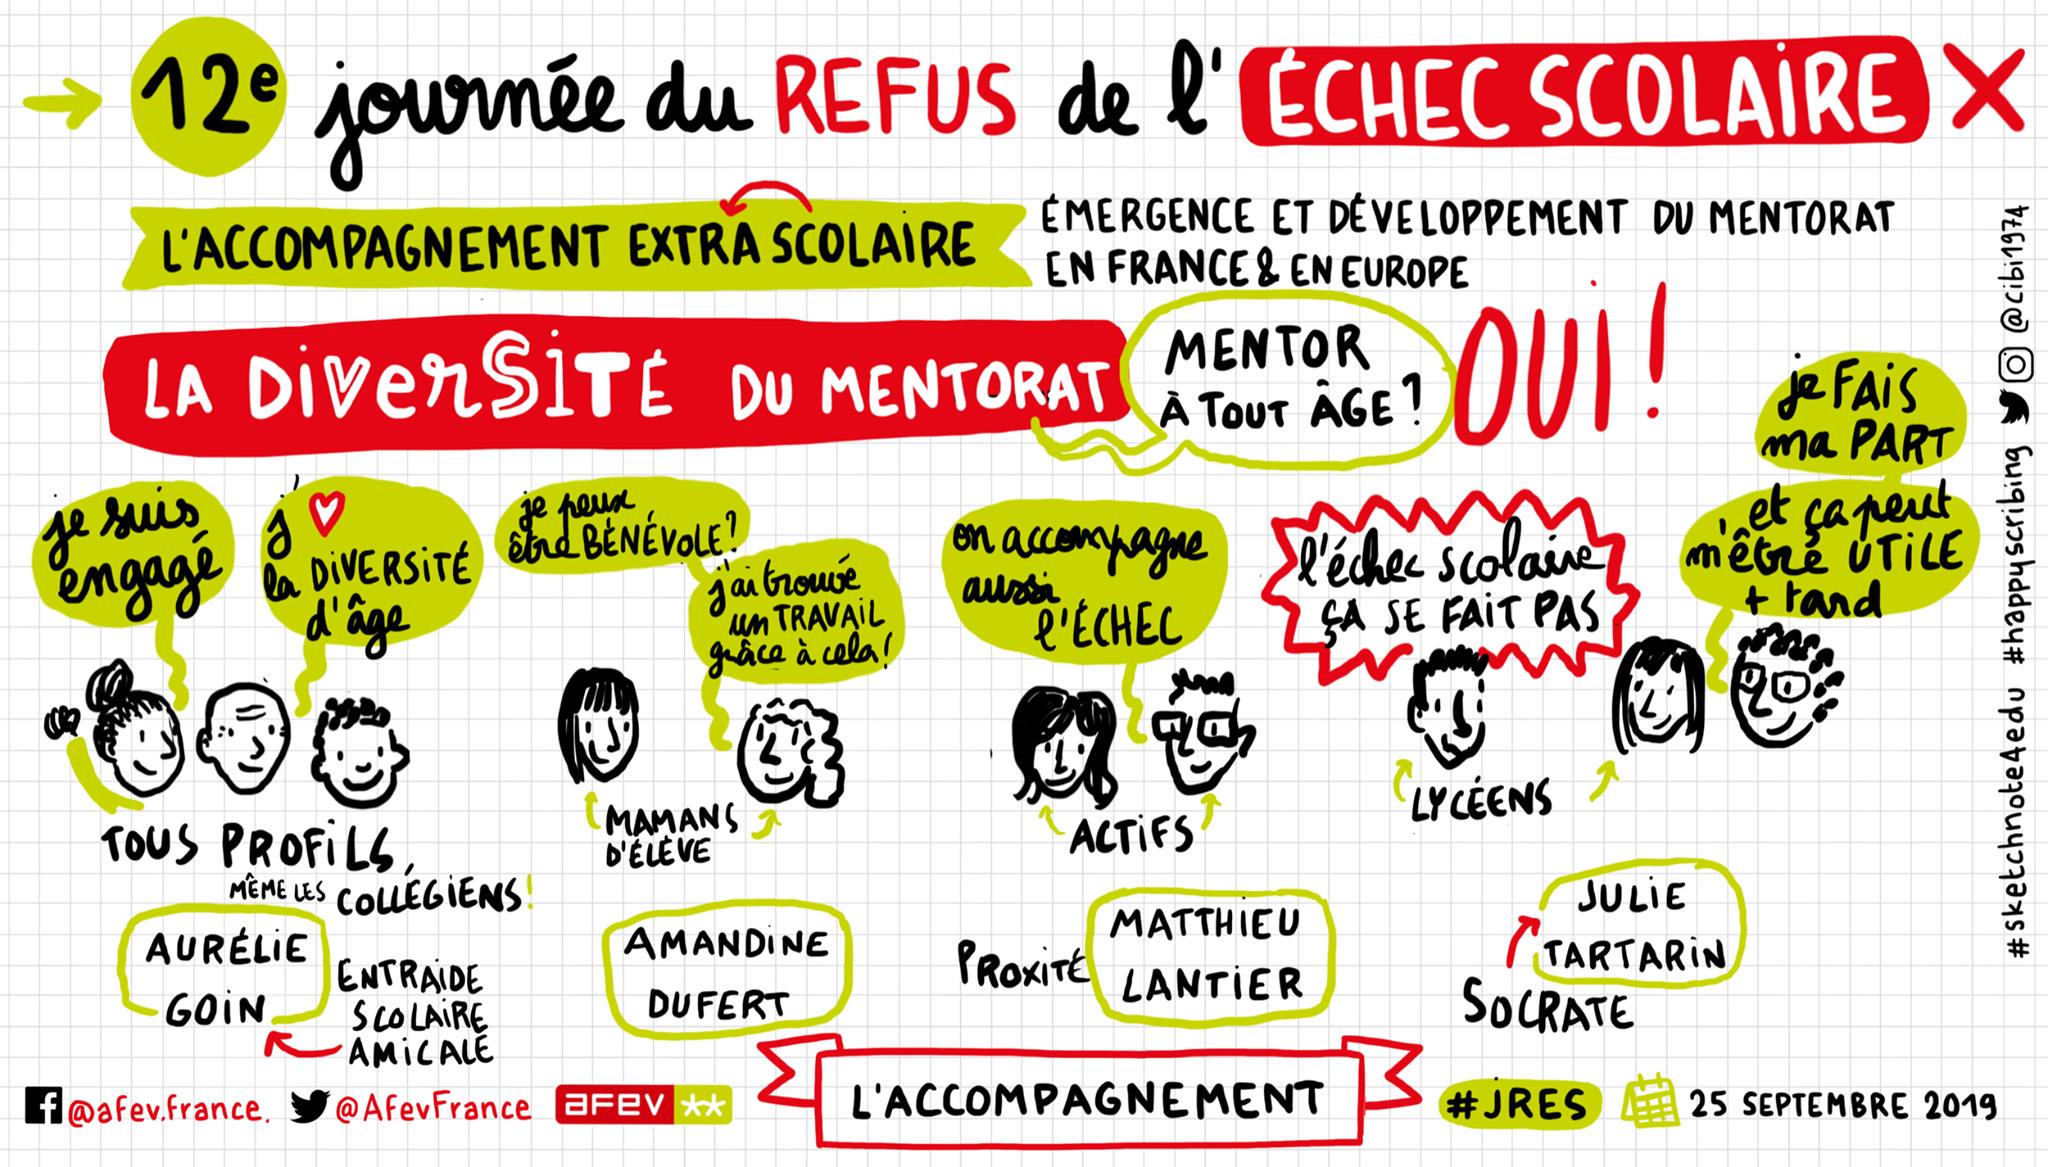 12e journée du REFUS de l'ÉCHEC SCOLAIRE
L'ACCOMPAGNEMENT EXTRA SCOLAIRE
ÉMERGENCE ET DÉVELOPPEMENT DU MENTORAT
EN FRANCE & EN EUROPE
LA DIVERSITÉ DU MENTORAT
MENTOR
À TOUT ÂGE ?
OUI !
je suis
engagé
j'
la DIVERSITÉ
d'âge
je peux
être BÉNÉVOLE?
j'ai trouvé
un TRAVAIL
grâce à cela!
on accompagne
aussi
l'ÉCHEC
l'échec scolaire
ÇA SE FAIT PAS
je FAIS
ma PART
et ça peut
m'être UTILE
+ tard
TOUS PROFILS,
MÊME LES COLLÉGIENS!
MAMANS
D'ÉLÈVE
ACTIFS
LYCÉENS
AURÉLIE
GOIN
ENTRAIDE
SCOLAIRE
AMICALE
AMANDINE
DUFERT
PROXITÉ
MATTHIEU
LANTIER
JULIE
TARTARIN
SOCRATE
@afev.france.
@AfevFrance
AFEV **
L'ACCOMPAGNEMENT
#JRES
25 SEPTEMBRE 2019
#sketchnote4edu #happyscribing @cibi1974